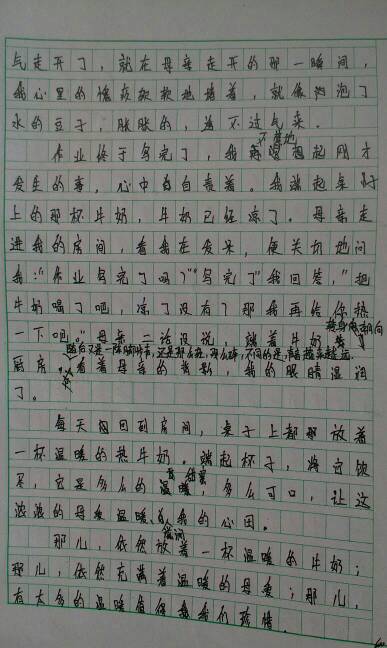 气走开了，就在母亲走开的那一瞬间，
我心里的愧疚软软地揣着，就像肉泡了
水的豆子，胀胀的，透不过气来。
不禁地
作业终于写完了，我想起刚才
发生的事，心中有自责着。我端起桌子
上的那杯牛奶，牛奶已经凉了。母亲走
进我的房间，看我在发呆，便关切地问
我："作业写完了吗？""写完了"我回答，"把
牛奶喝了吧，凉了没有？那我再给你热
一下吧。"母亲二话没说，端着牛奶
转身走向
厨房。
随后又是一阵脚步声，还是那么轻，那么碎，不同的是，声音越来越远。
看着母亲的背影，我的眼睛湿润
了。
每天回到房间，桌子上都放着
一杯温暖的热牛奶。端起杯子，将它饮
尽，它是多么的温暖，多么可口，让这
浓浓的母爱温暖我的心田。
那儿，依然放着一杯温暖的牛奶；
那儿，依然充满着温暖的母爱；那儿，
有太多的温暖值得我们珍惜。